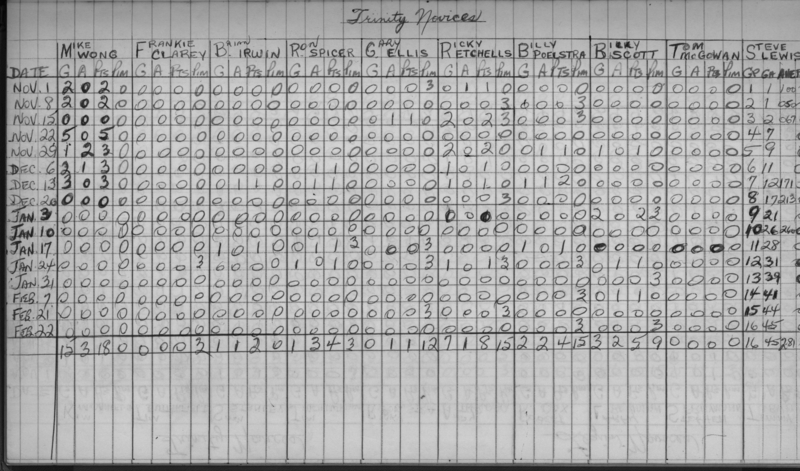 Trinity Novices
MIKE WONG FRANKIE CLAREY BRIAN IRWIN RON SPICER GARY ELLIS RICKY KETCHELLS BILLY POELSTRA BILLY SCOTT TOM McGOWAN STEVE LEWIS
DATE G A Pts Pim G A Pts Pim G A Pts Pim G A Pts Pim G A Pts Pim G A Pts Pim G A Pts Pim G A Pts Pim G A Pts Pim GP GA AVE
NOV. 1 2 0 2 0 0 0 0 0 0 0 0 0 0 0 0 0 0 0 0 3 0 1 1 0 0 0 0 0 0 0 0 0 0 0 0 0 1 1
NOV. 8 2 0 2 0 0 0 0 0 0 0 0 0 0 0 0 0 0 0 0 0 0 0 0 3 0 0 0 3 0 0 0 0 0 0 0 0 2 1
NOV. 12 0 0 0 0 0 0 0 0 0 0 0 0 0 0 0 0 0 1 1 0 2 0 2 3 0 0 0 3 0 0 0 0 0 0 0 0 3 2
NOV. 22 5 0 5 0 0 0 0 0 0 0 0 0 0 0 0 0 0 0 0 0 0 0 0 0 0 0 0 0 0 0 0 0 0 0 0 0 4 7
NOV. 29 1 2 3 0 0 0 0 0 0 0 0 0 0 0 0 0 0 0 0 0 2 0 2 0 0 1 1 0 1 0 1 0 0 0 0 0 5 9
DEC. 6 2 1 3 0 0 0 0 0 0 0 0 0 0 1 1 0 0 0 0 0 1 0 1 0 0 0 0 0 0 0 0 0 0 0 0 0 6 11
DEC. 13 3 0 3 0 0 0 0 0 0 1 1 0 0 1 1 0 0 0 0 0 1 0 1 0 1 1 2 0 0 0 0 0 0 0 0 0 7 12 171
DEC. 20 0 0 0 0 0 0 0 0 0 0 0 0 0 0 0 0 0 0 0 0 0 0 0 3 0 0 0 0 0 0 0 0 0 0 0 0 8 17 213
JAN. 3 0 0 0 0 0 0 0 0 0 0 0 0 0 0 0 0 0 0 0 0 0 0 0 0 0 0 0 0 2 0 2 3 0 0 0 0 9 21
JAN 10 0 0 0 0 0 0 0 0 0 0 0 0 0 0 0 0 0 0 0 0 0 0 0 0 0 0 0 0 0 0 0 0 0 0 0 0 10 26 260
JAN. 17 0 0 0 0 0 0 0 0 1 0 1 0 0 1 1 3 0 0 0 3 0 0 0 0 1 0 1 0 0 0 0 0 0 0 0 0 11 28
JAN. 24 0 0 0 0 0 0 0 3 0 0 0 0 1 0 1 0 0 0 0 3 1 0 1 3 0 0 0 3 0 1 1 0 0 0 0 0 12 31
JAN. 31 0 0 0 0 0 0 0 0 0 0 0 0 0 0 0 0 0 0 0 0 0 0 0 0 0 0 0 0 0 0 0 3 0 0 0 0 13 39
FEB. 7 0 0 0 0 0 0 0 0 0 0 0 0 0 0 0 0 0 0 0 0 0 0 0 0 0 0 0 3 0 1 1 0 0 0 0 0 14 41
FEB. 21 0 0 0 0 0 0 0 0 0 0 0 0 0 0 0 0 0 0 0 3 0 0 0 3 0 0 0 0 0 0 0 0 0 0 0 0 15 44
FEB. 22 0 0 0 0 0 0 0 0 0 0 0 0 0 0 0 0 0 0 0 0 0 0 0 0 0 0 0 3 0 0 0 3 0 0 0 0 16 45
15 3 18 0 0 0 0 3 1 1 2 0 1 3 4 3 0 1 1 12 7 1 8 15 2 2 4 15 3 2 5 9 0 0 0 0 16 45 281